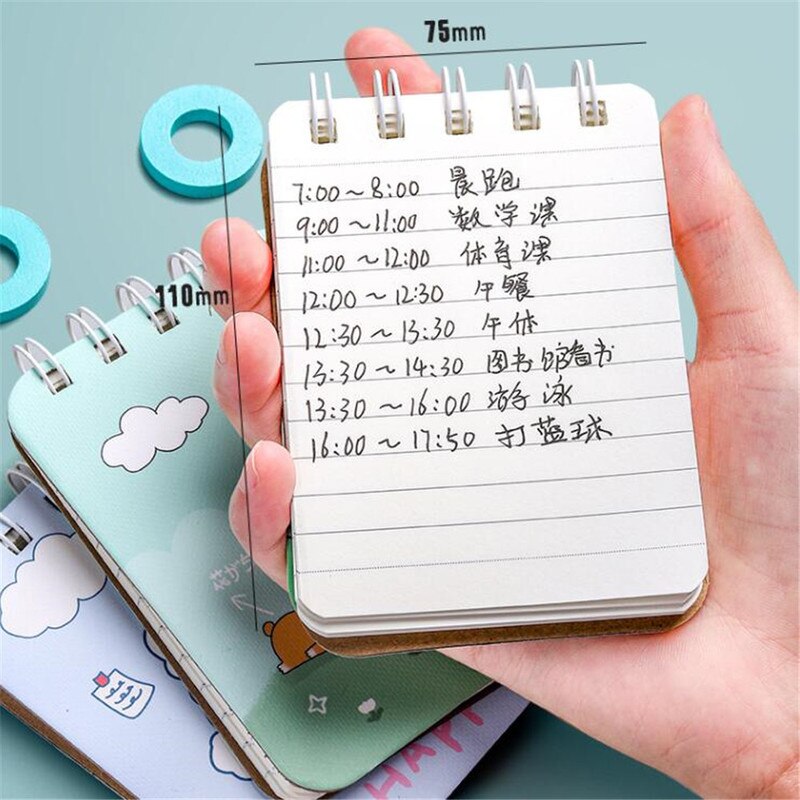 75mm
7:00～8:00 晨跑
9:00～11:00 数学课
11:00～12:00 体育课
110mm
12:00～12:30 午餐
12:30～13:30 午休
13:30～14:30 图书馆看书
13:30～16:00 游泳
16:00～17:50 打蓝球
HAPP